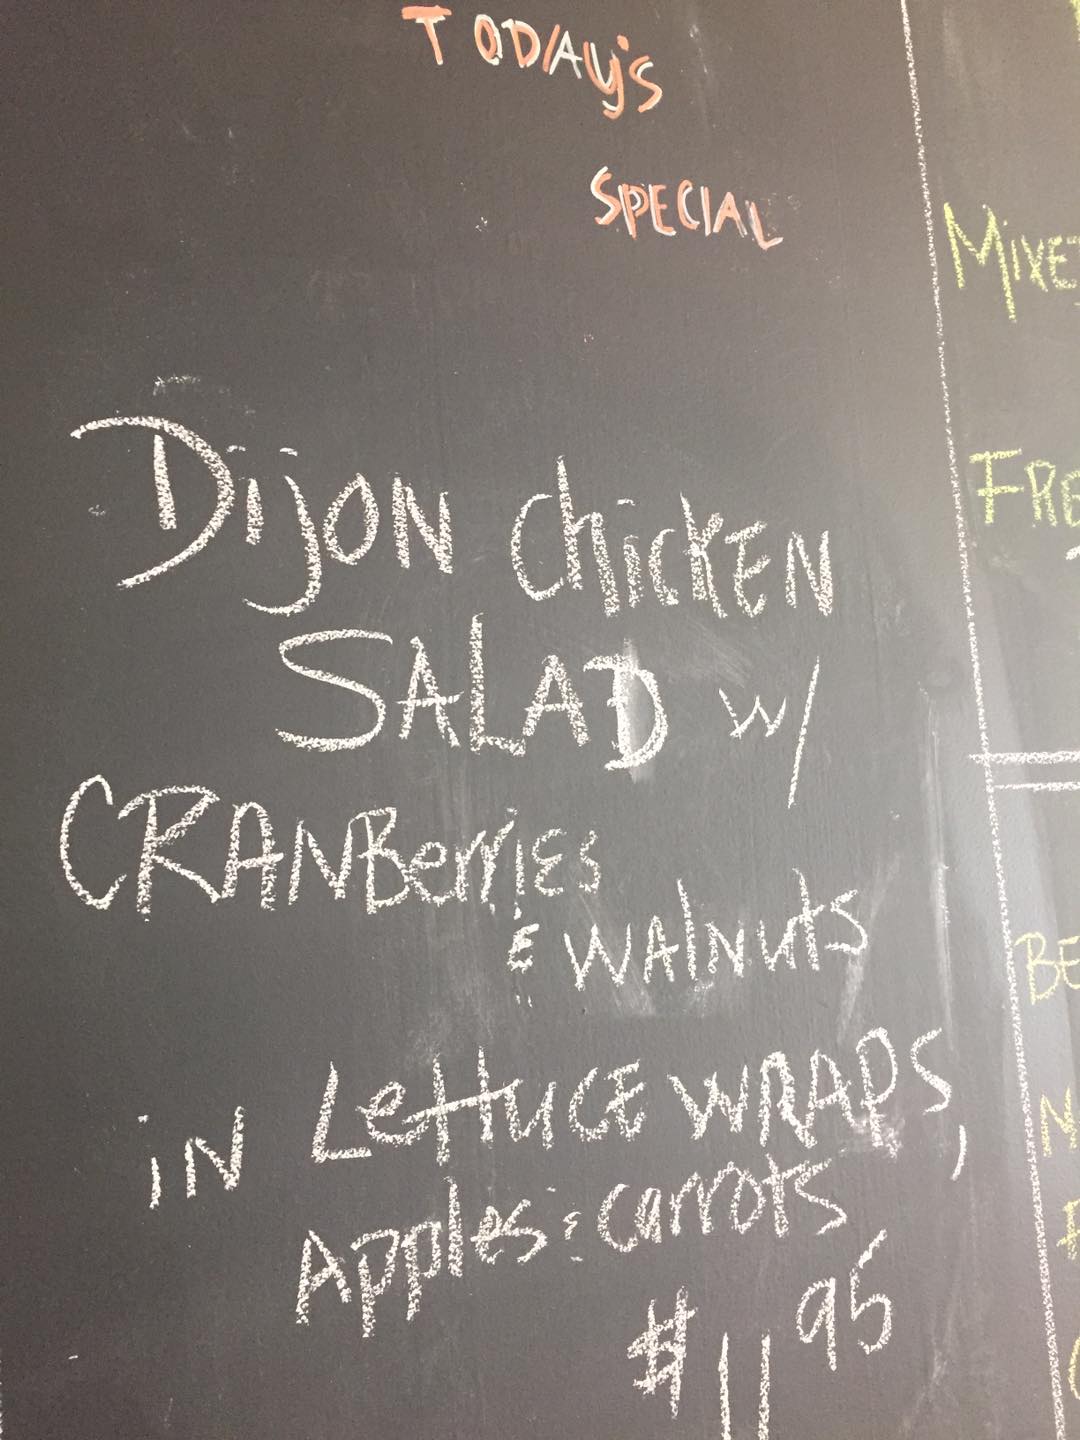 TODAy's
SPECIAL
Dijon chicken
SALAD w/
CRANBerries
& walnuts
in Lettuce WRAPS,
Apples & carrots
$11.95